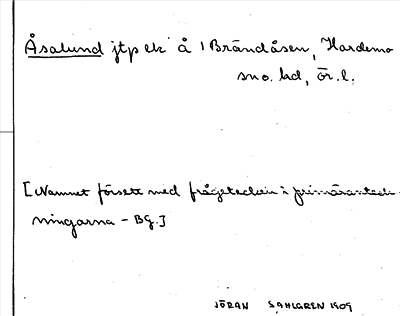 Åsalund jtp ek å 1 Brändåsen, Hardemo
sn o. hd, Ör. l.
[Namnet försett med frågetecken i primäranteck-
ningarna - BG.]
JÖRAN SAHLGREN 1909